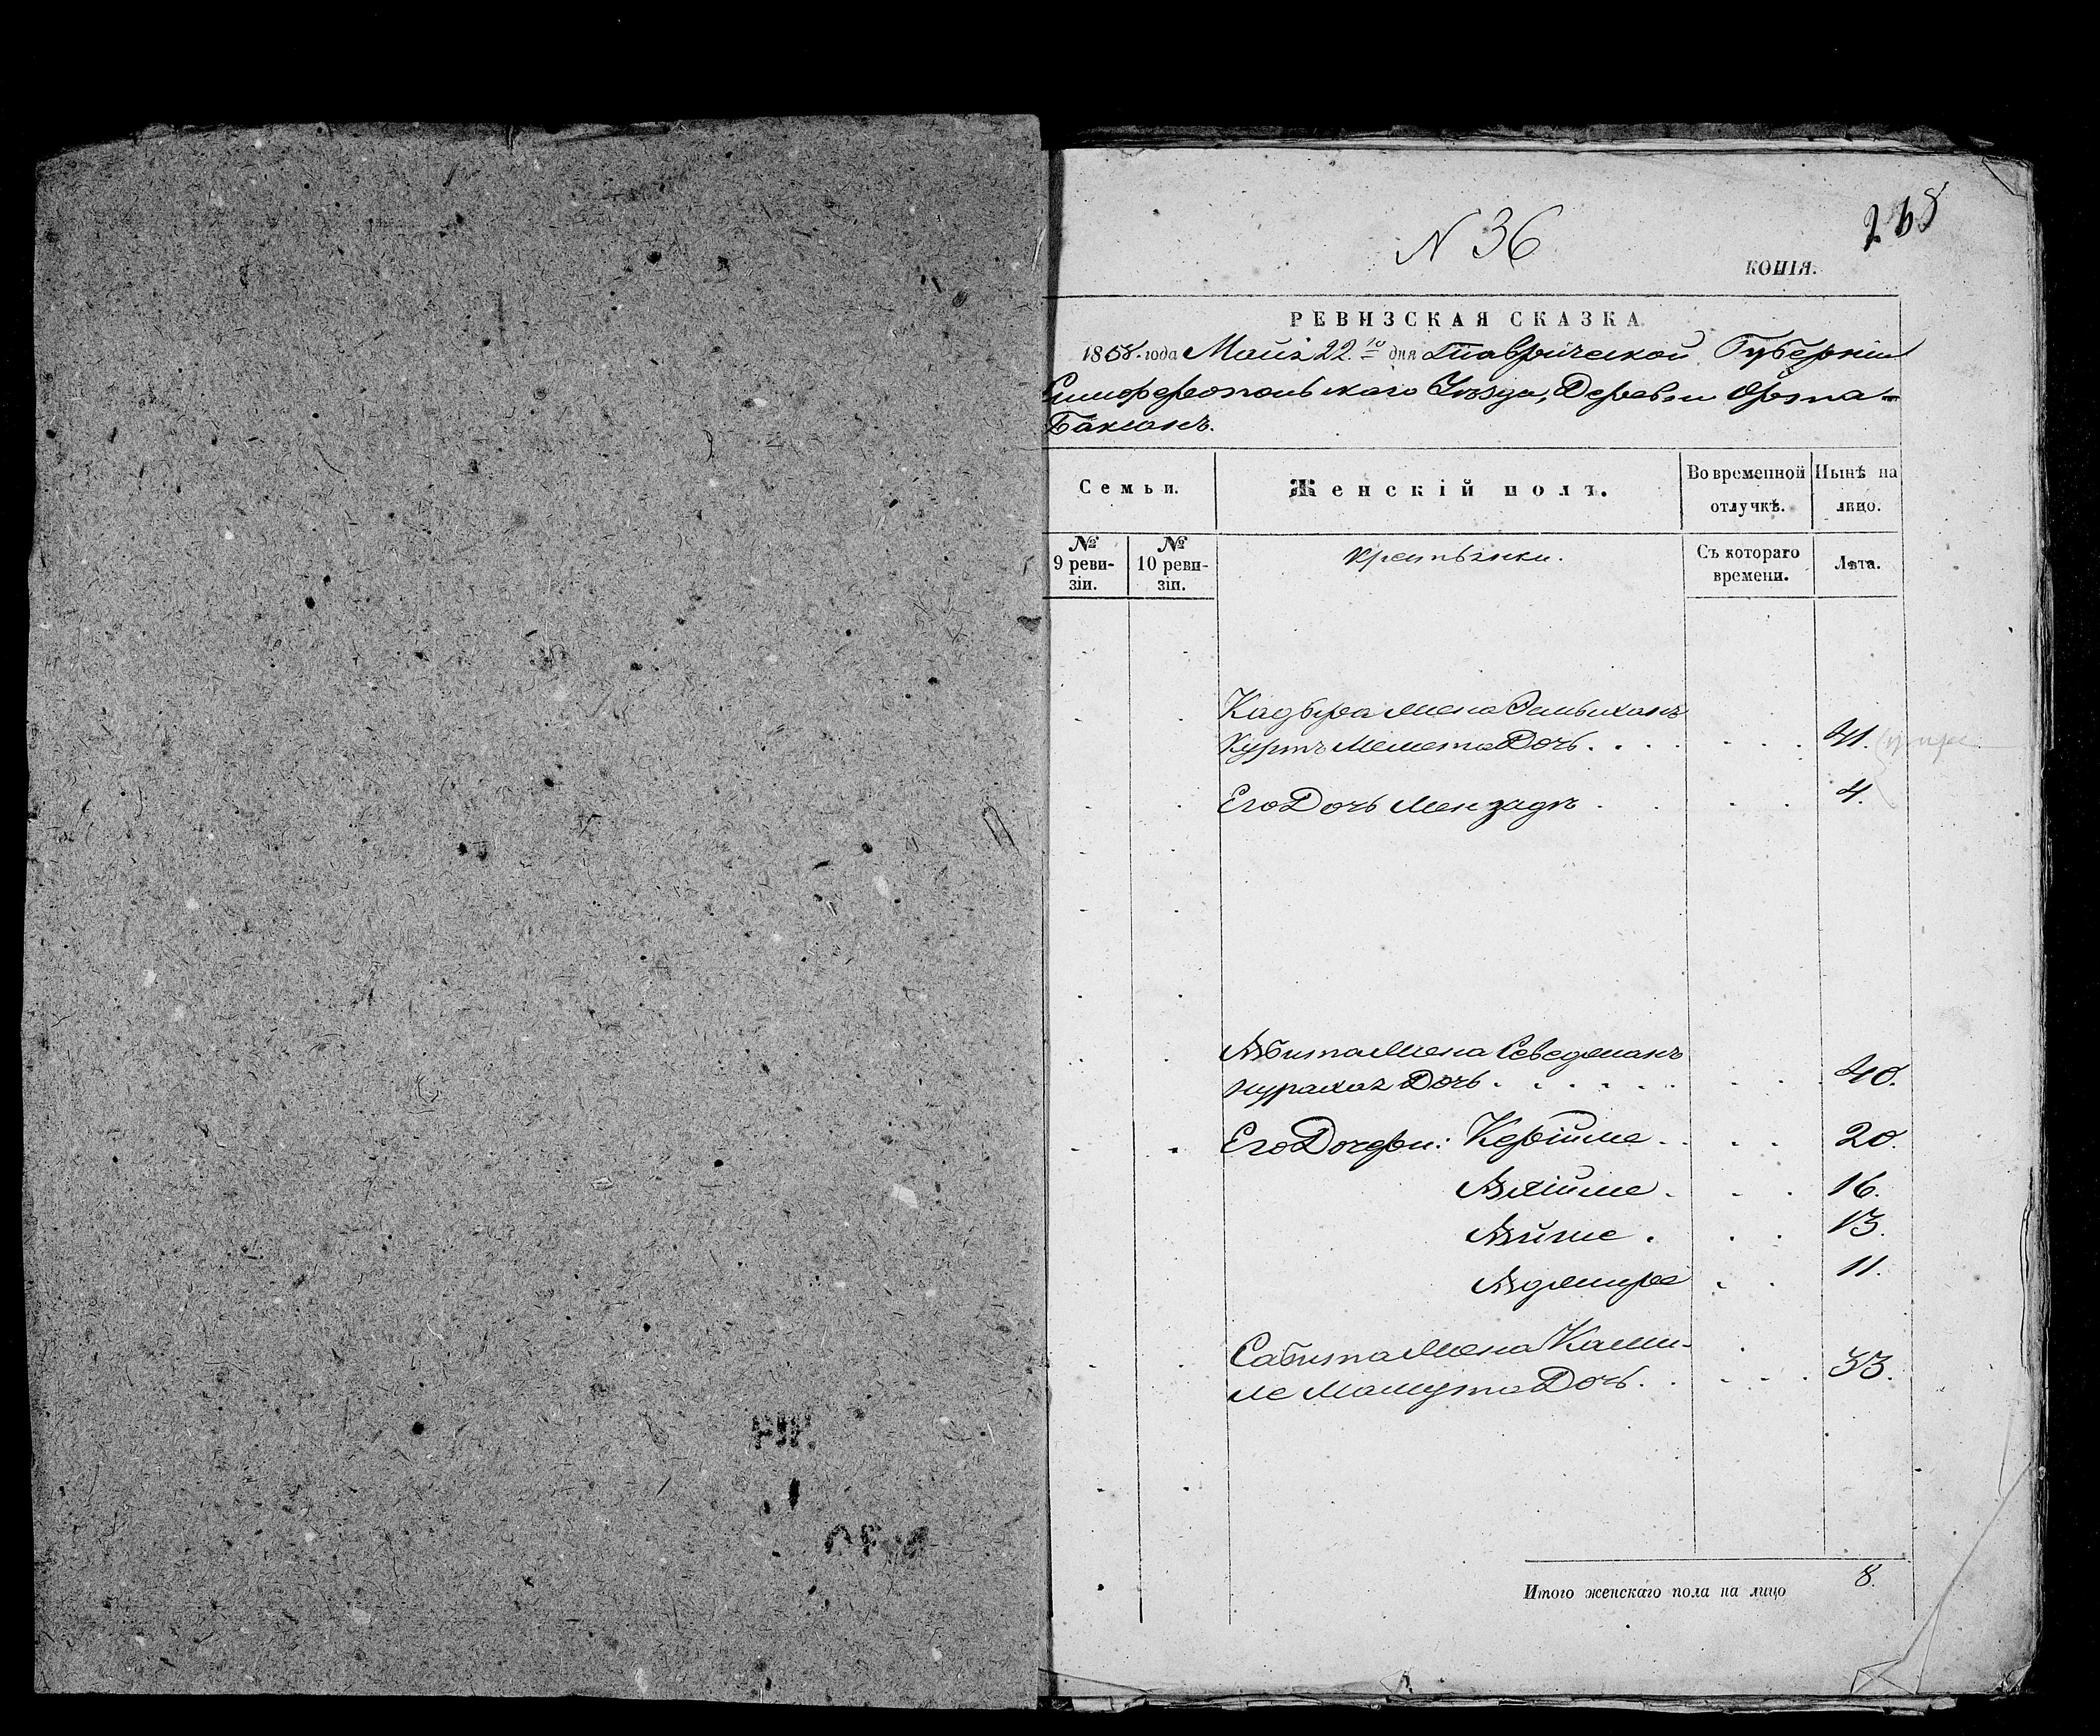 268
N 36
КОПІЯ.
РЕВИЗСКАЯ СКАЗКА
1858. года Маія 22.го дня Таврической Губерніи
Симферопольскаго Уѣзда, Деревни Орта-
Баксанъ.
Семьи. Женскій полъ. Во временной отлучкѣ. Нынѣ на лицо.
№ 9 ревизіи. № 10 ревизіи. Крестьянки. Съ котораго времени. Лѣта.
Кадыра жена
Куртъ Мемета Дочь. 41.
Его Дочь Мензаде 4.
Абита жена
Дочь. 40.
Его Дочери: Керійме 20.
Алійме 16.
Айше 13.
11.
Сабита жена Ками-
ле Мамута Дочь. 33.
Итого женскаго пола на лицо 8.